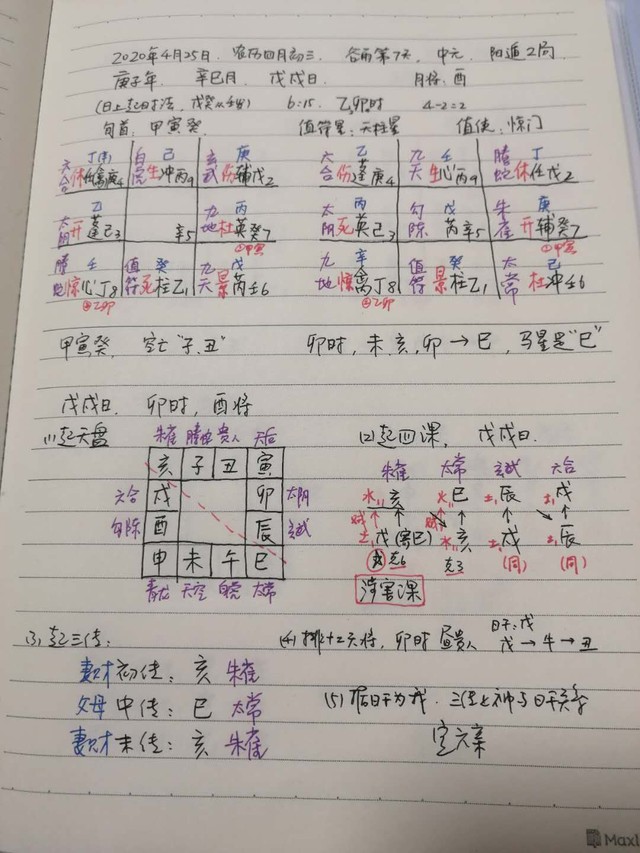 2020年4月25日. 农历四月初三. 谷雨第7天, 中元. 阳遁2局
庚子年. 辛巳月. 戊戌日. 月将: 酉
(日上起时法, 戊癸从壬子) 6:15. 乙卯时 4-2=2
旬首: 甲寅癸. 值符星: 天柱星 值使: 惊门
六合 丁 休任禽庚4 白虎 己 生冲丙9 玄武 庚 伤辅戊2
六合 乙 伤蓬庚4 九天 壬 生心丙9 螣蛇 丁 休任戊2
太阴 乙 开蓬己3 辛5 九地 丙 杜英癸7 ①甲寅
太阴 丙 死英己3 勾陈 戊 芮辛5 朱雀 庚 开辅癸7 ①甲寅
螣蛇 壬 惊心丁8 ②乙卯 值符 癸 死柱乙1 九天 戊 景芮壬6
九地 辛 惊禽丁8 ②乙卯 值符 癸 景柱乙1 太常 己 杜冲壬6
甲寅癸. 空亡"子.丑" 卯时, 未.亥.卯→巳, 马星是"巳"
戊戌日. 卯时, 酉将
(1)起天盘 (2)起四课, 戊戌日.
朱雀 螣蛇 贵人 天后
亥 子 丑 寅
六合 戌 卯 太阴
勾陈 酉 辰 玄武
申 未 午 巳
青龙 天空 白虎 太常
朱雀 太常 玄武 六合
水 亥 火 巳 土 辰 土 戌
贼↑ ↑ 贼↑ ↑ ↑ ↑
土 戊(寄巳) 水 亥 土 戌 土 辰
克6 克3 (同) (同)
涉害课
(3)起三传: (4)排十二天将, 卯时 昼贵人 日干:戊
戊→牛→丑
妻财 初传: 亥 朱雀
父母 中传: 巳 太常
妻财 末传: 亥 朱雀
(5)据日干为我. 三传上神与日干关系
定六亲
Maxl